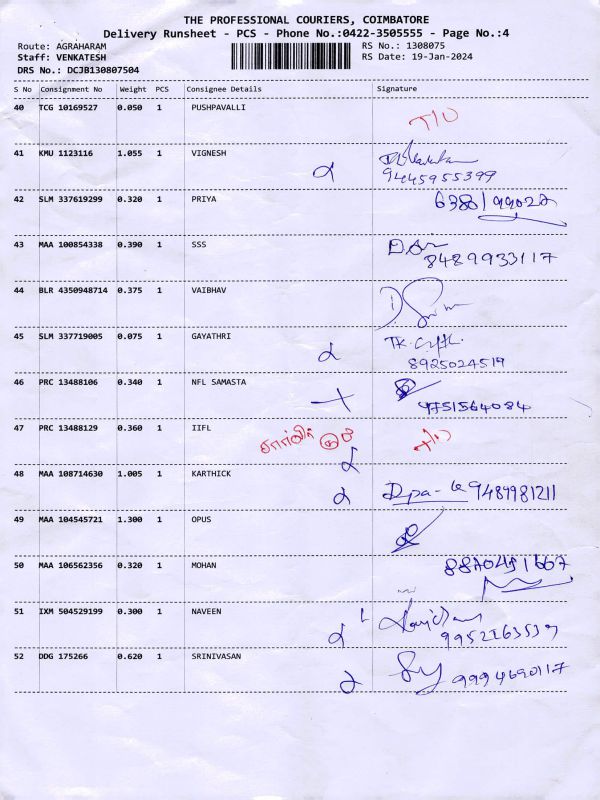 THE PROFESSIONAL COURIERS, COIMBATORE
Delivery Runsheet - PCS - Phone No.:0422-3505555 - Page No.:4
Route: AGRAHARAM RS No.: 1308075
Staff: VENKATESH RS Date: 19-Jan-2024
DRS No.: DCJB130807504
S No Consignment No Weight PCS Consignee Details Signature
40 TCG 10169527 0.050 1 PUSHPAVALLI
41 KMU 1123116 1.055 1 VIGNESH
9445955399
42 SLM 337619299 0.320 1 PRIYA
43 MAA 100854338 0.390 1 SSS
8489933117
44 BLR 4350948714 0.375 1 VAIBHAV
45 SLM 337719005 0.075 1 GAYATHRI
8925024519
46 PRC 13488106 0.340 1 NFL SAMASTA
9751564084
47 PRC 13488129 0.360 1 IIFL
48 MAA 108714630 1.005 1 KARTHICK
9489981211
49 MAA 104545721 1.300 1 OPUS
50 MAA 106562356 0.320 1 MOHAN
8870491667
51 IXM 504529199 0.300 1 NAVEEN
52 DDG 175266 0.620 1 SRINIVASAN
9994690117